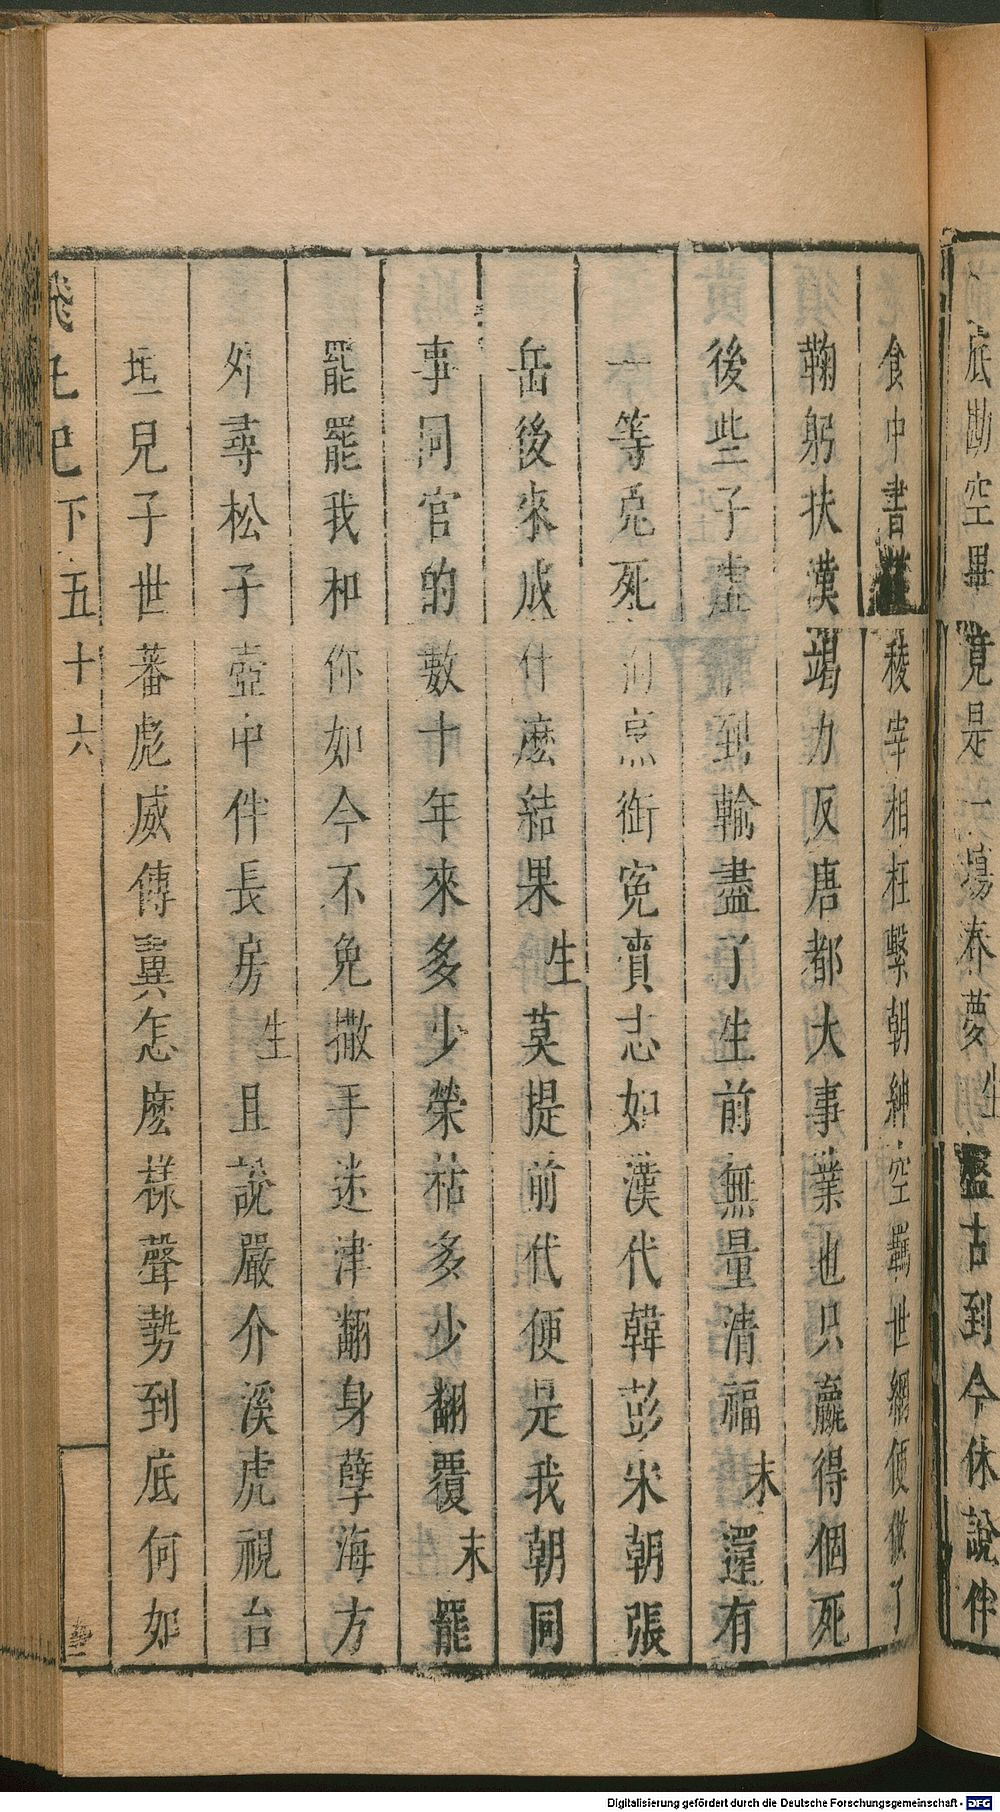 底勘空畢竟是一場春夢生盤古到今休說伴
食中書稜宰相枉繫朝紳空羈世網便做了
鞠躬扶漢竭力反唐都大事業也只贏得個死
後些子虛到輸盡了生前無量清福末還有
一等兎死狗烹銜冤賫志如漢代韓彭宋朝張
岳後來成什麼結果生莫提前代便是我朝同
事同官的數十年來多少榮枯多少翻覆末罷
罷罷我和你如今不免撒手迷津翻身孽海方
好尋松子壺中伴長房生且說嚴介溪虎視台
垣兒子世蕃彪威傅翼怎麼樣聲勢到底何如
飛丸記下五十六
Digitalisierung gefördert durch die Deutsche Forschungsgemeinschaft - DFG